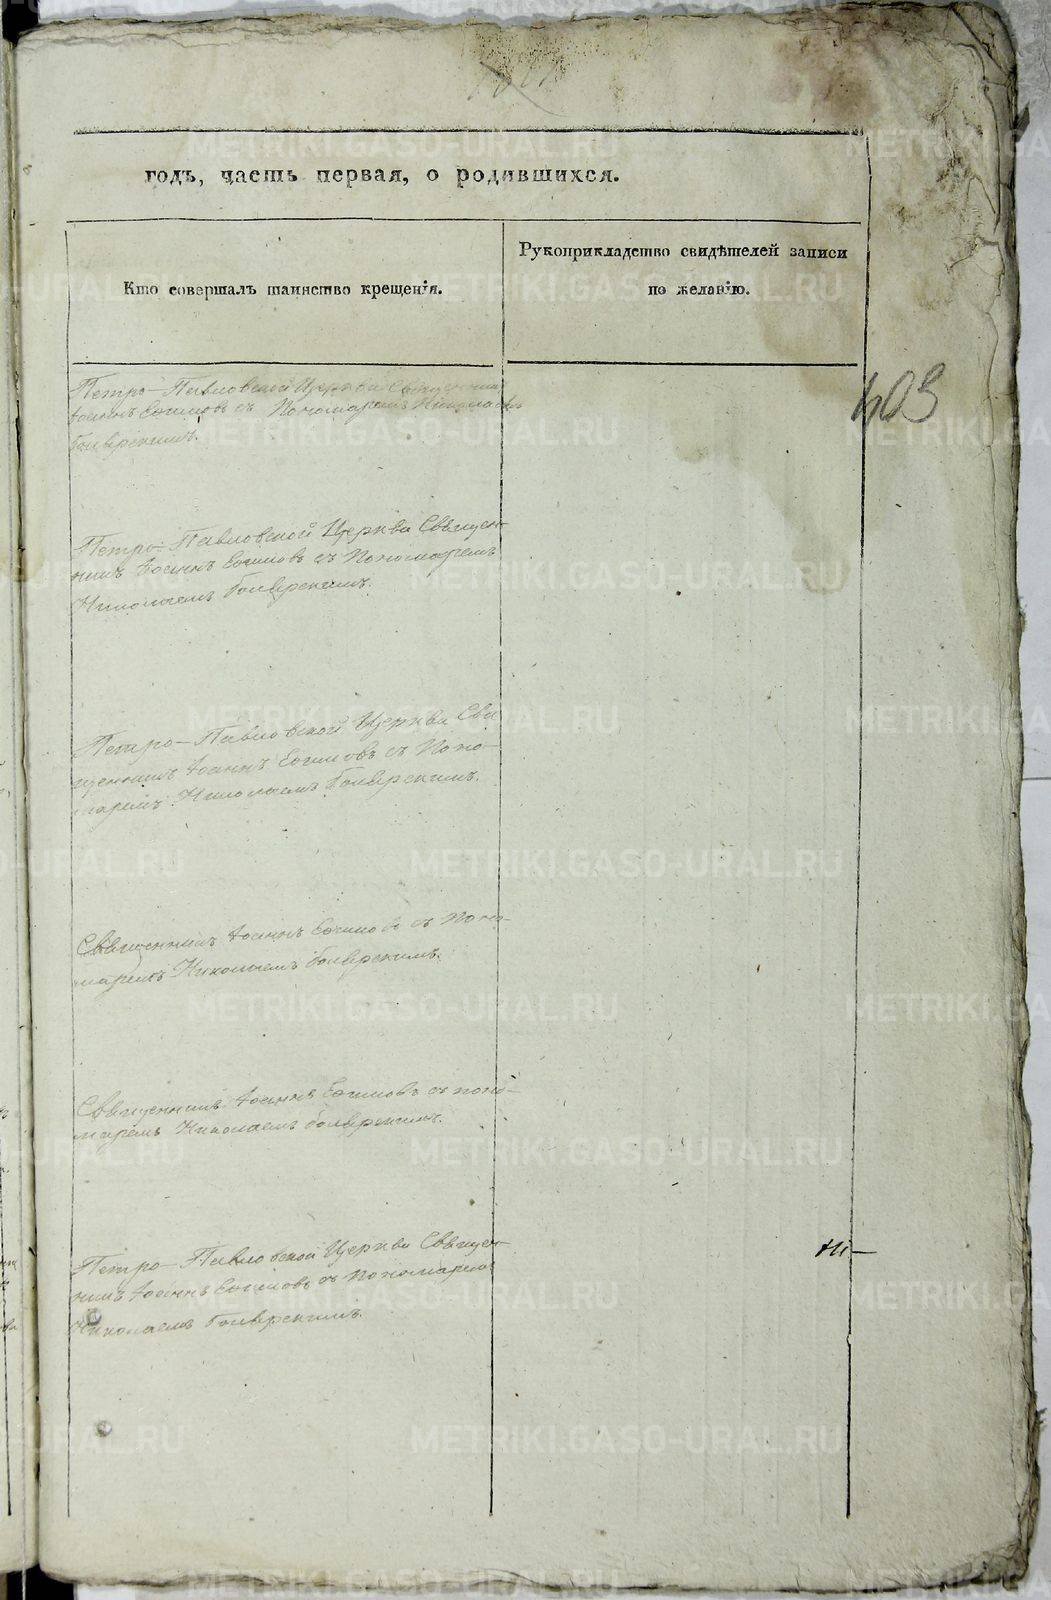 годъ, часть первая, о родившихся.
Кто совершалъ таинство крещенія.
Рукоприкладство свидѣтелей записи
по желанію.
403
Петро-Павловской Церкви Священникъ
Іоаннъ Ефимовъ съ Пономаремъ Николаемъ
Петро-Павловской Церкви Священ-
никъ Іоаннъ Ефимовъ съ Пономаремъ
Николаемъ
Петро-Павловской Церкви Свя-
щенникъ Іоаннъ Ефимовъ съ Поно-
маремъ Николаемъ
Священникъ Іоаннъ Ефимовъ съ Поно-
маремъ Николаемъ
Священникъ Іоаннъ Ефимовъ съ поно-
маремъ Николаемъ
Петро-Павловской Церкви Священ-
никъ Іоаннъ Ефимовъ съ Пономаремъ
Николаемъ
METRIKI.GASO-URAL.RU